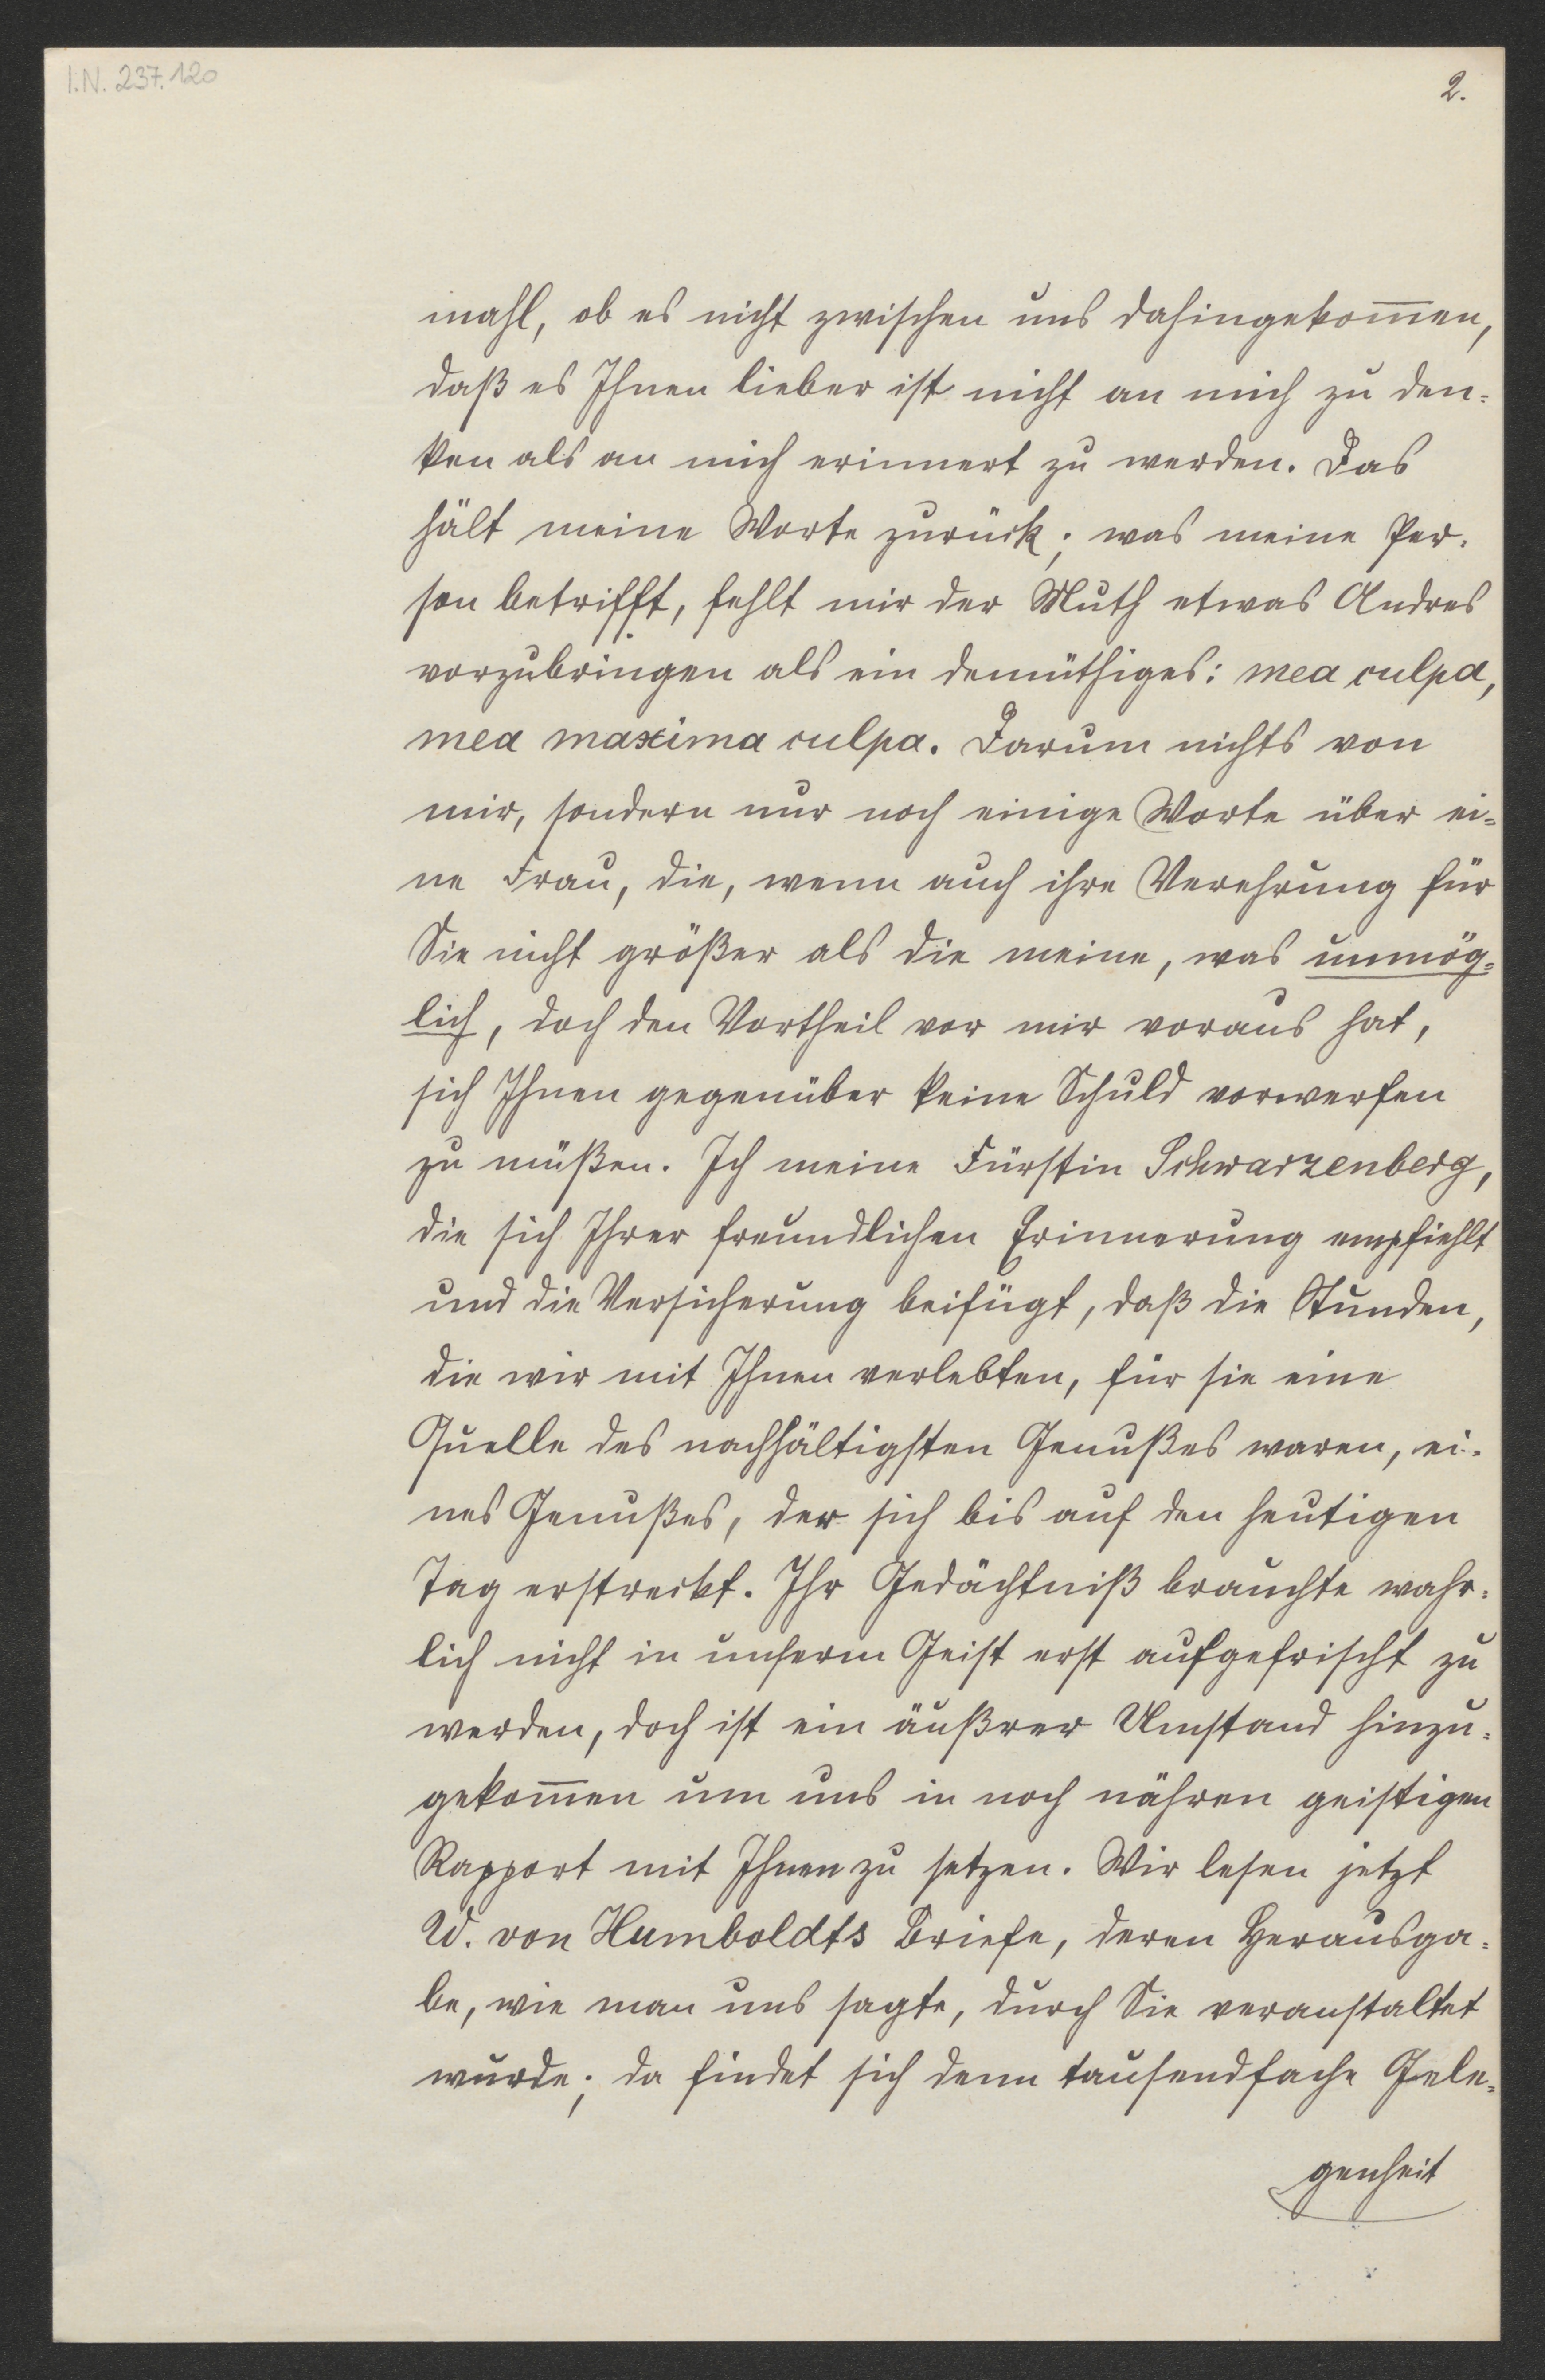 I.N. 237.120
2.
mahl, ob es nicht zwischen uns dahingekom̅en,
daß es Ihnen lieber ist nicht an mich zu den-
ken als an mich erinnert zu werden. Das
hält meine Worte zurück; was meine Per-
son betrifft, fehlt mir der Muth etwas Andres
vorzubringen als ein demüthiges: mea culpa,
mea maxima culpa. Darum nichts von
mir, sondern nur noch einige Worte über ei-
ne Frau, die, wenn auch ihre Verehrung für
Sie nicht größer als die meine, was unmög-
lich, doch den Vortheil vor mir voraus hat,
sich Ihnen gegenüber keine Schuld vorwerfen
zu müßen. Ich meine Fürstin Schwarzenberg,
die sich Ihrer freundlichen Erinnerung empfiehlt
und die Versicherung beifügt, daß die Stunden,
die wir mit Ihnen verlebten, für sie eine
Quelle des nachhältigsten Genußes waren, ei-
nes Genußes, der sich bis auf den heutigen
Tag erstreckt. Ihr Gedächtniß brauchte wahr-
lich nicht in unserm Geist erst aufgefrischt zu
werden, doch ist ein äußrer Umstand hinzu-
gekom̅en um uns in noch nähren geistigen
Rapport mit Ihnen zu setzen. Wir lesen jetzt
W. von Humboldts Briefe, deren Herausga-
be, wie man uns sagte, durch Sie veranstaltet
wurde; da findet sich denn tausendfache Gele-
genheit